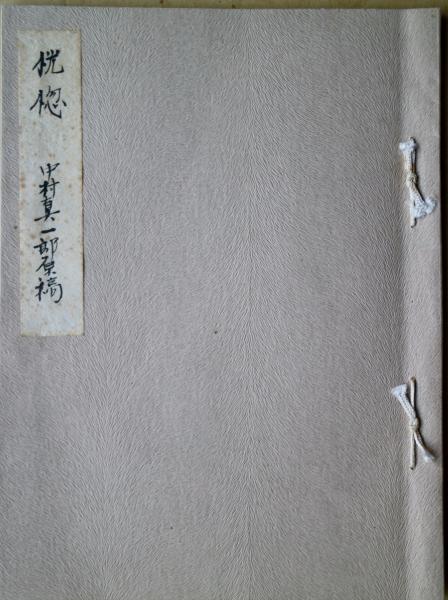 恍惚
中村真一郎原稿